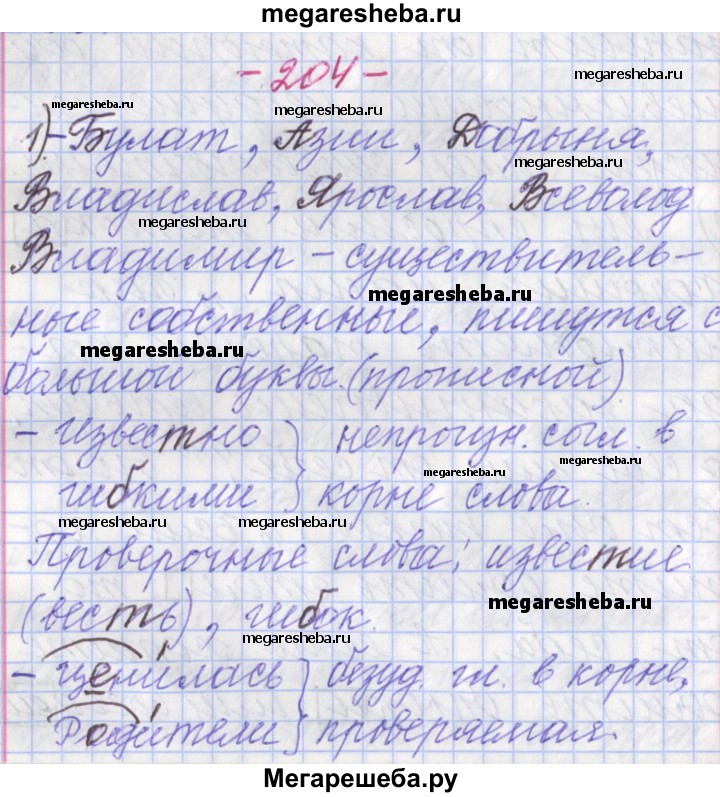 megaresheba.ru
- 204 -
megaresheba.ru
megaresheba.ru
megaresheba.ru
1) - Булат, Азии, Добрыня,
megaresheba.ru
Владислав, Ярослав, Всеволод
megaresheba.ru
Владимир - существитель-
megaresheba.ru
ные собственные, пишутся с
megaresheba.ru
большой буквы. (прописной)
- известно } непроизн. согл. в
megaresheba.ru
megaresheba.ru
гибкими } корне слова.
megaresheba.ru
megaresheba.ru
Проверочные слова: известие
megaresheba.ru
(весть), гибок.
megaresheba.ru
- ценилась } безуд. гл. в корне,
Родители } проверяемая.
Мегарешеба.ру